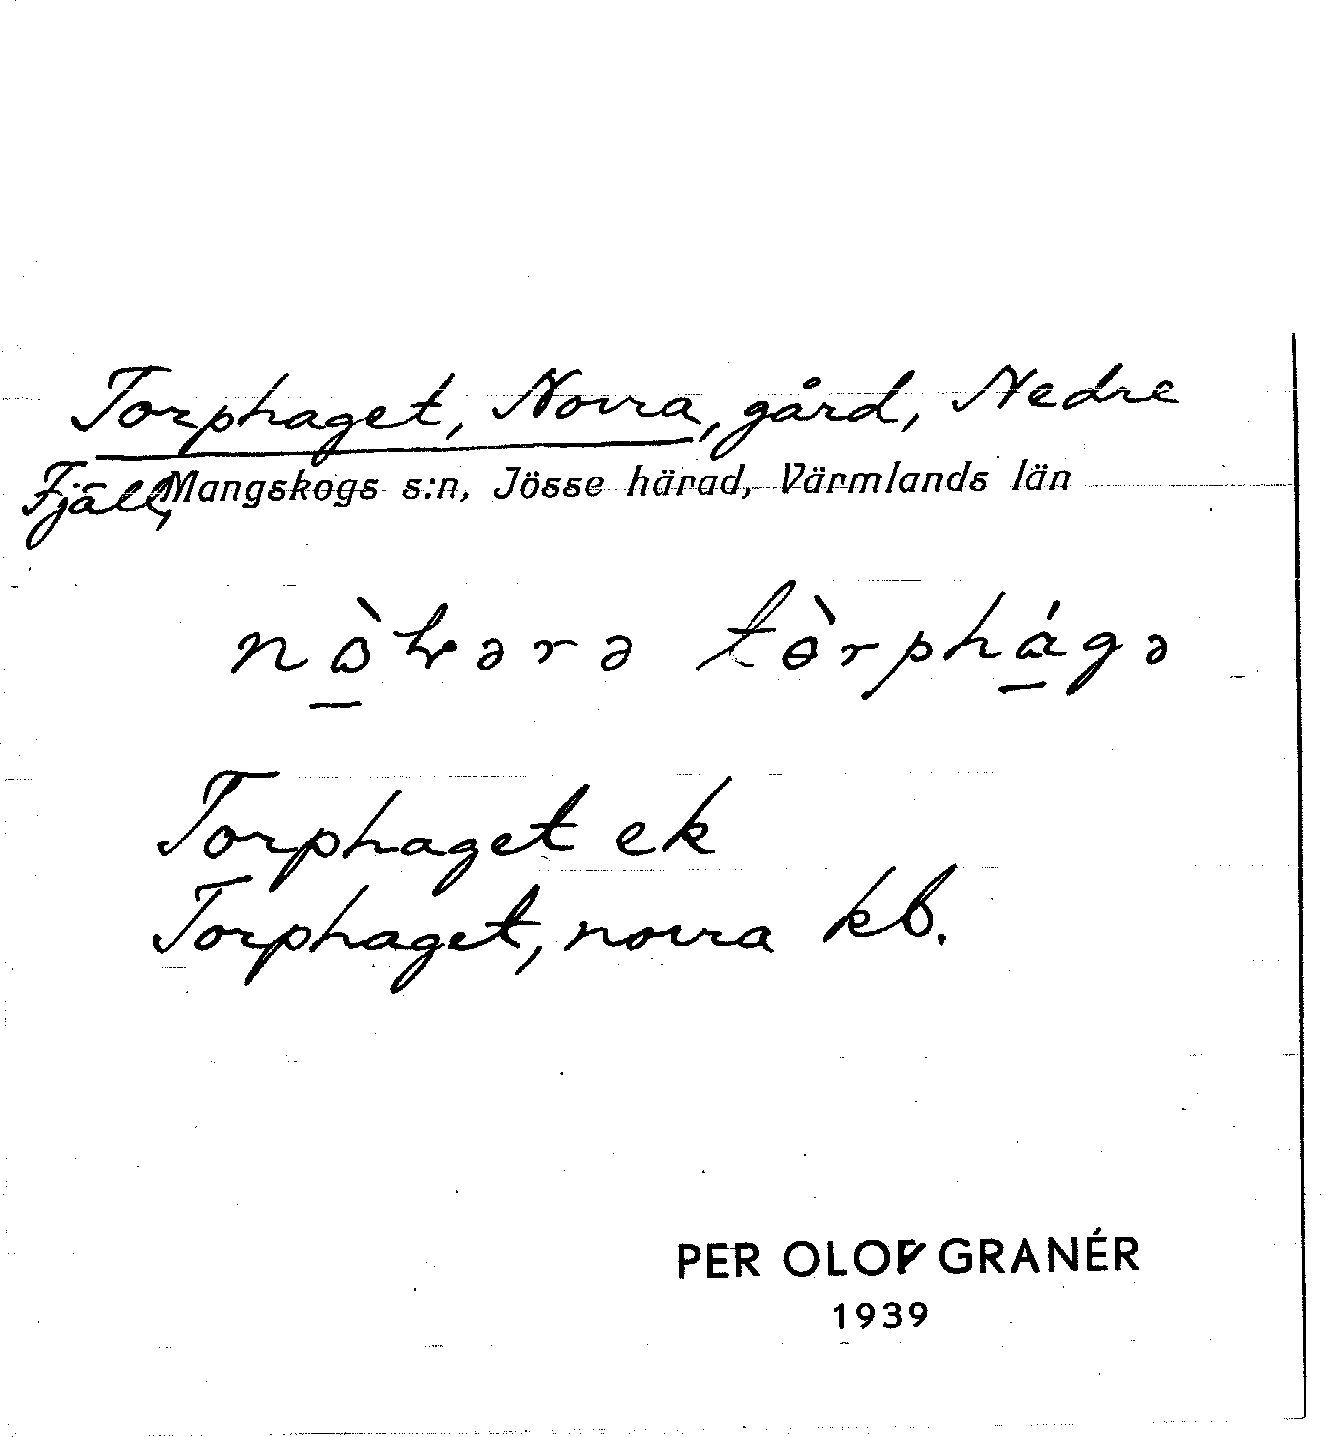 Torphaget, Norra, gård, Nedre
Fjäll, Mangskogs s:n, Jösse härad, Värmlands län
tòrphágə
Torphaget ek
Torphaget, norra kb.
PER OLOF GRANÉR
1939